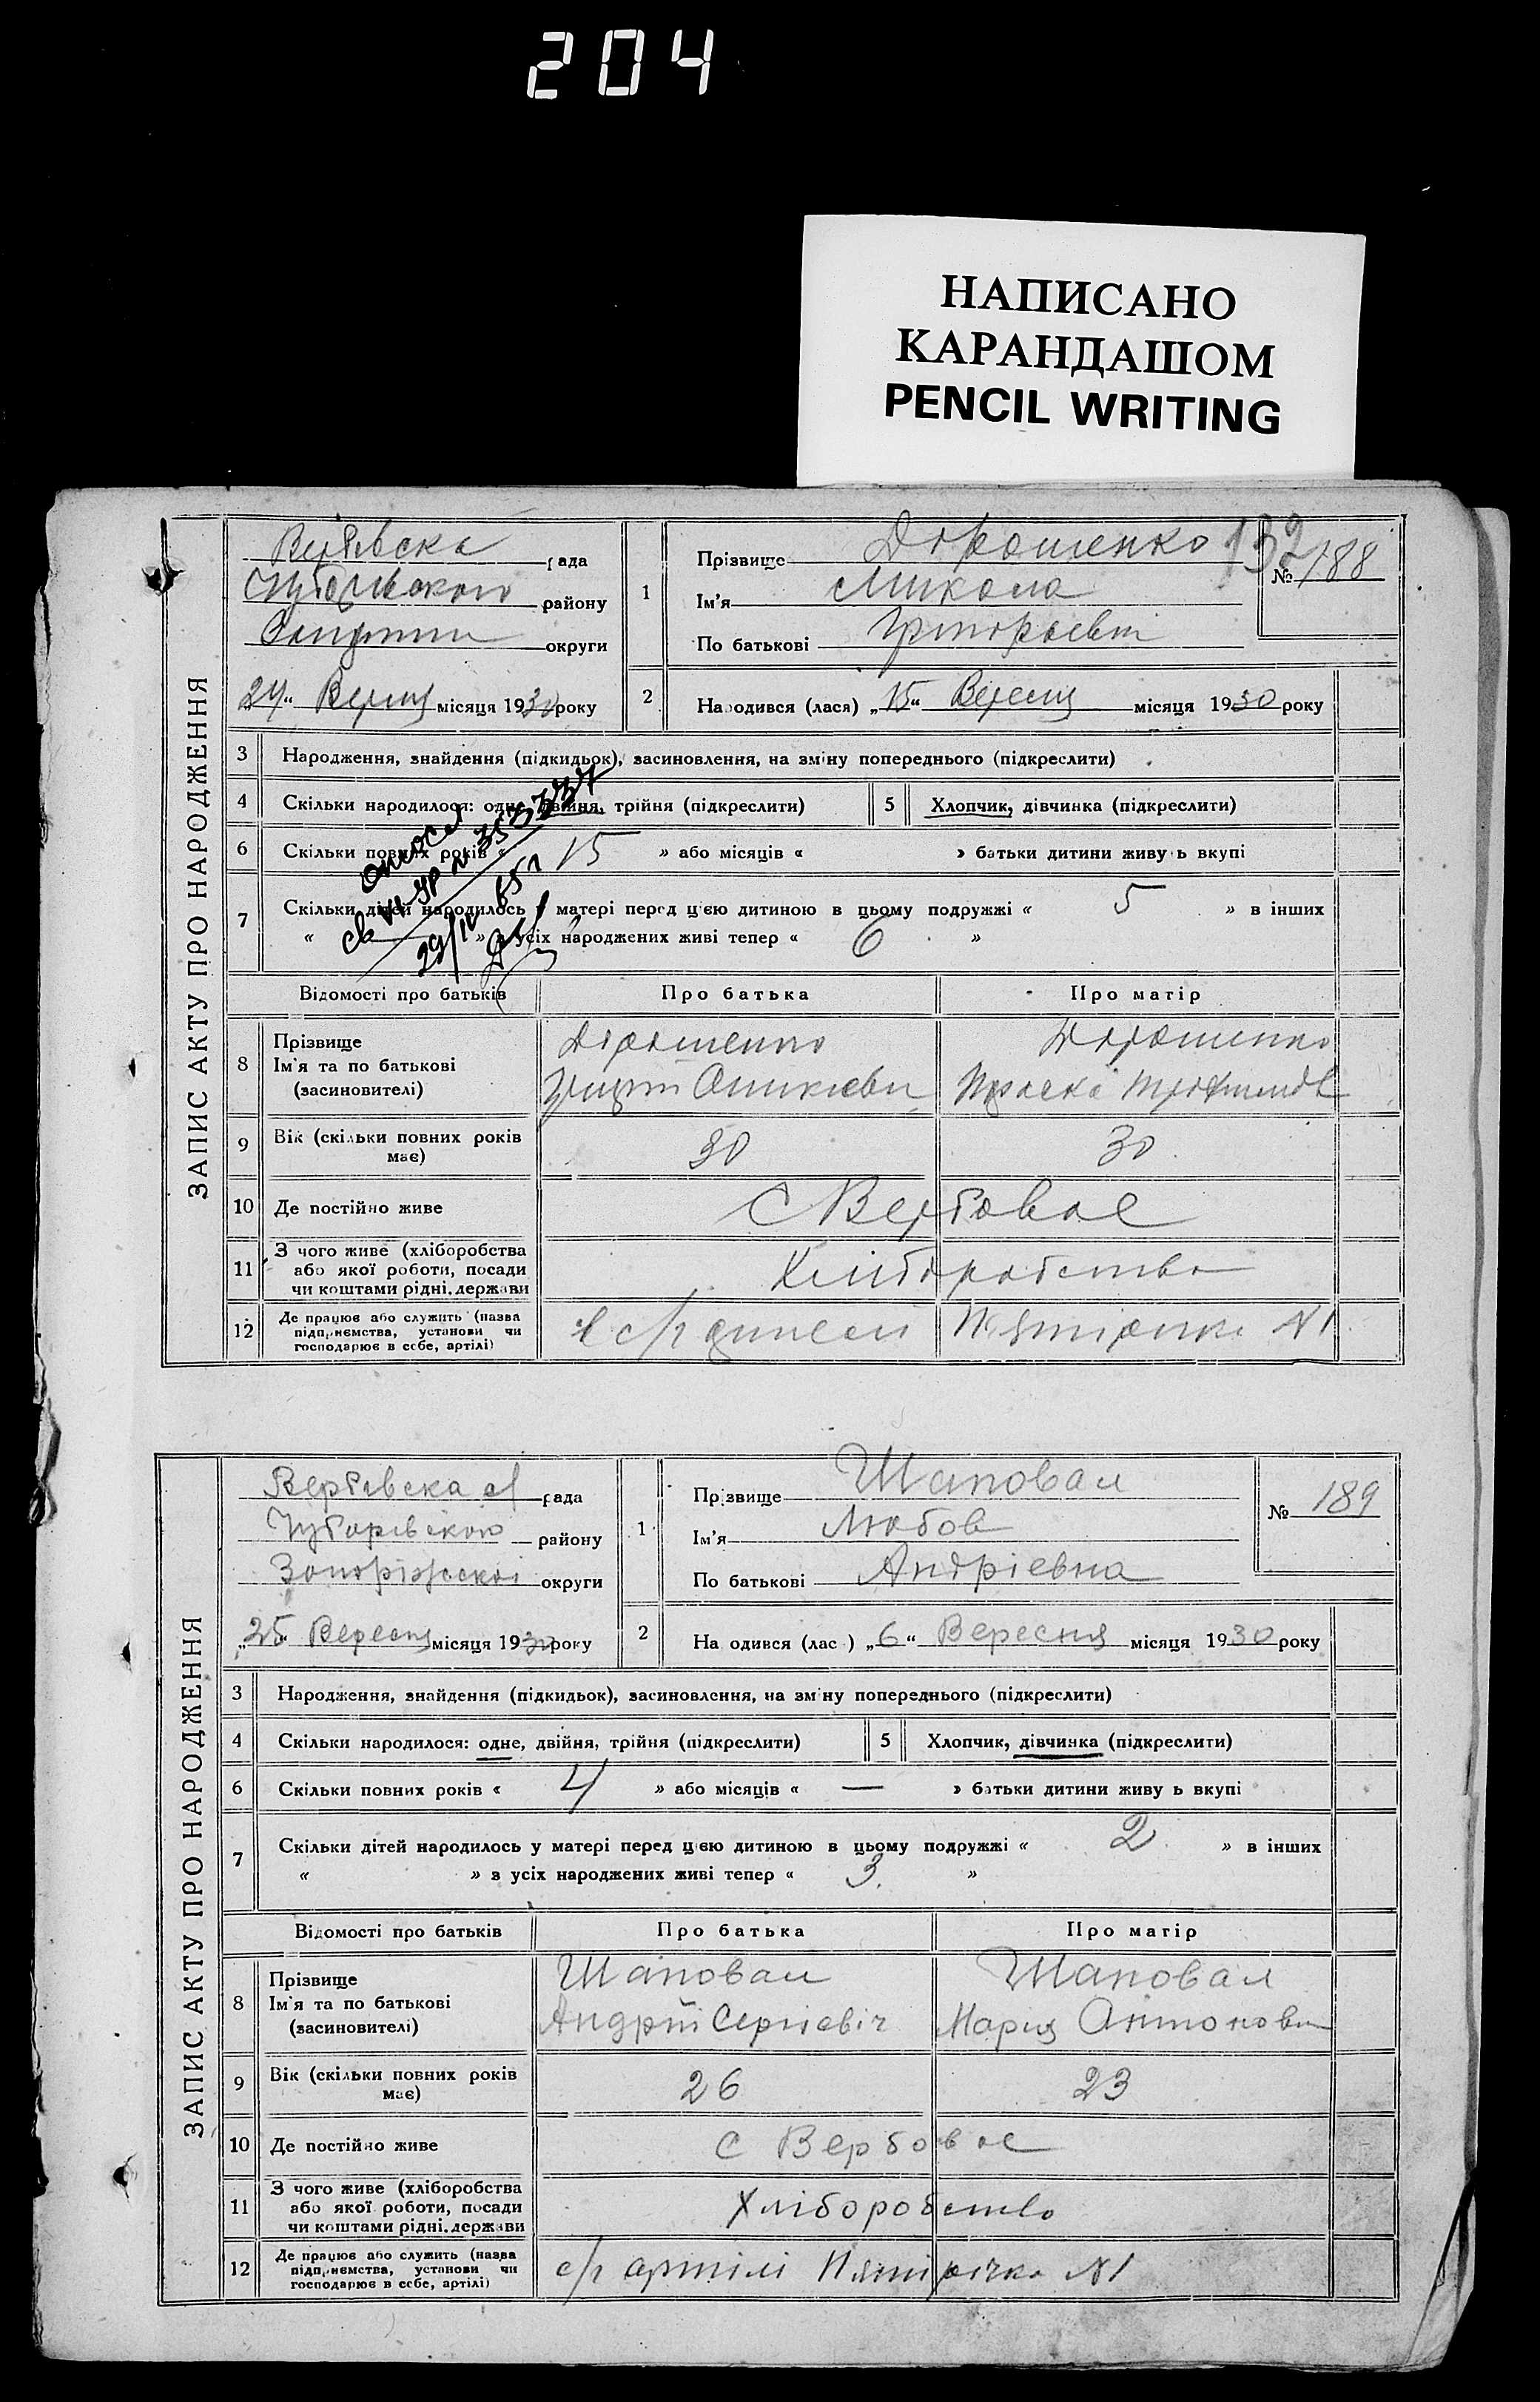 204
НАПИСАНО
КАРАНДАШОМ
PENCIL WRITING
ЗАПИС АКТУ ПРО НАРОДЖЕННЯ
Вербівська рада
району
округи
24 місяця 1930 року
1
Прізвище Дорошенко
Ім'я Микола
По батькові
132
№ 188
2 Народився (лася) „15“ місяця 1930 року
3 Народження, знайдення (підкидьок), засиновлення, на зміну попереднього (підкреслити)
4 Скільки народилося: одне, двійня, трійня (підкреслити)
5 Хлопчик, дівчинка (підкреслити)
6 Скільки повних років « 15 » або місяців « » батьки дитини живуть вкупі
7 Скільки дітей народилось у матері перед цією дитиною в цьому подружжі « 5 » в інших
« » в усіх народжених живі тепер « 6 »
Відомості про батьків Про батька Про матір
8 Прізвище Дорошенко Дорошенко
Ім'я та по батькові
(засновителі)
9 Вік (скільки повних років має) 30 30
10 Де постійно живе С Вербовае
11 З чого живе (хліборобства
або якої роботи, посади
чи коштами рідні, держави Хліборобство
12 Де працює або служить (назва
підприємства, установи чи
господарює в себе, артілі) с/г N1
ЗАПИС АКТУ ПРО НАРОДЖЕННЯ
Вербівска рада
Чубарівского району
Запоріжскоі округи
„25“ Вересня місяця 1930 року
1
Прізвище Шаповал
Ім'я Любов
По батькові Андріевна
№ 189
2 Народився (лася) „6“ Вересня місяця 1930 року
3 Народження, знайдення (підкидьок), засиновлення, на зміну попереднього (підкреслити)
4 Скільки народилося: одне, двійня, трійня (підкреслити)
5 Хлопчик, дівчинка (підкреслити)
6 Скільки повних років « 4 » або місяців « — » батьки дитини живуть вкупі
7 Скільки дітей народилось у матері перед цією дитиною в цьому подружжі « 2 » в інших
« » в усіх народжених живі тепер « 3 »
Відомості про батьків Про батька Про матір
8 Прізвище Шаповал Шаповал
Ім'я та по батькові Андрій Сергіевіч Мария Антоновн
(засиновителі)
9 Вік (скільки повних років має) 26 23
10 Де постійно живе С Вербовае
11 З чого живе (хліборобства
або якої роботи, посади
чи коштами рідні, держави Хліборобство
12 Де працює або служить (назва
підприємства, установи чи
господарює в себе, артілі) с/г артілі Пятірічка N1